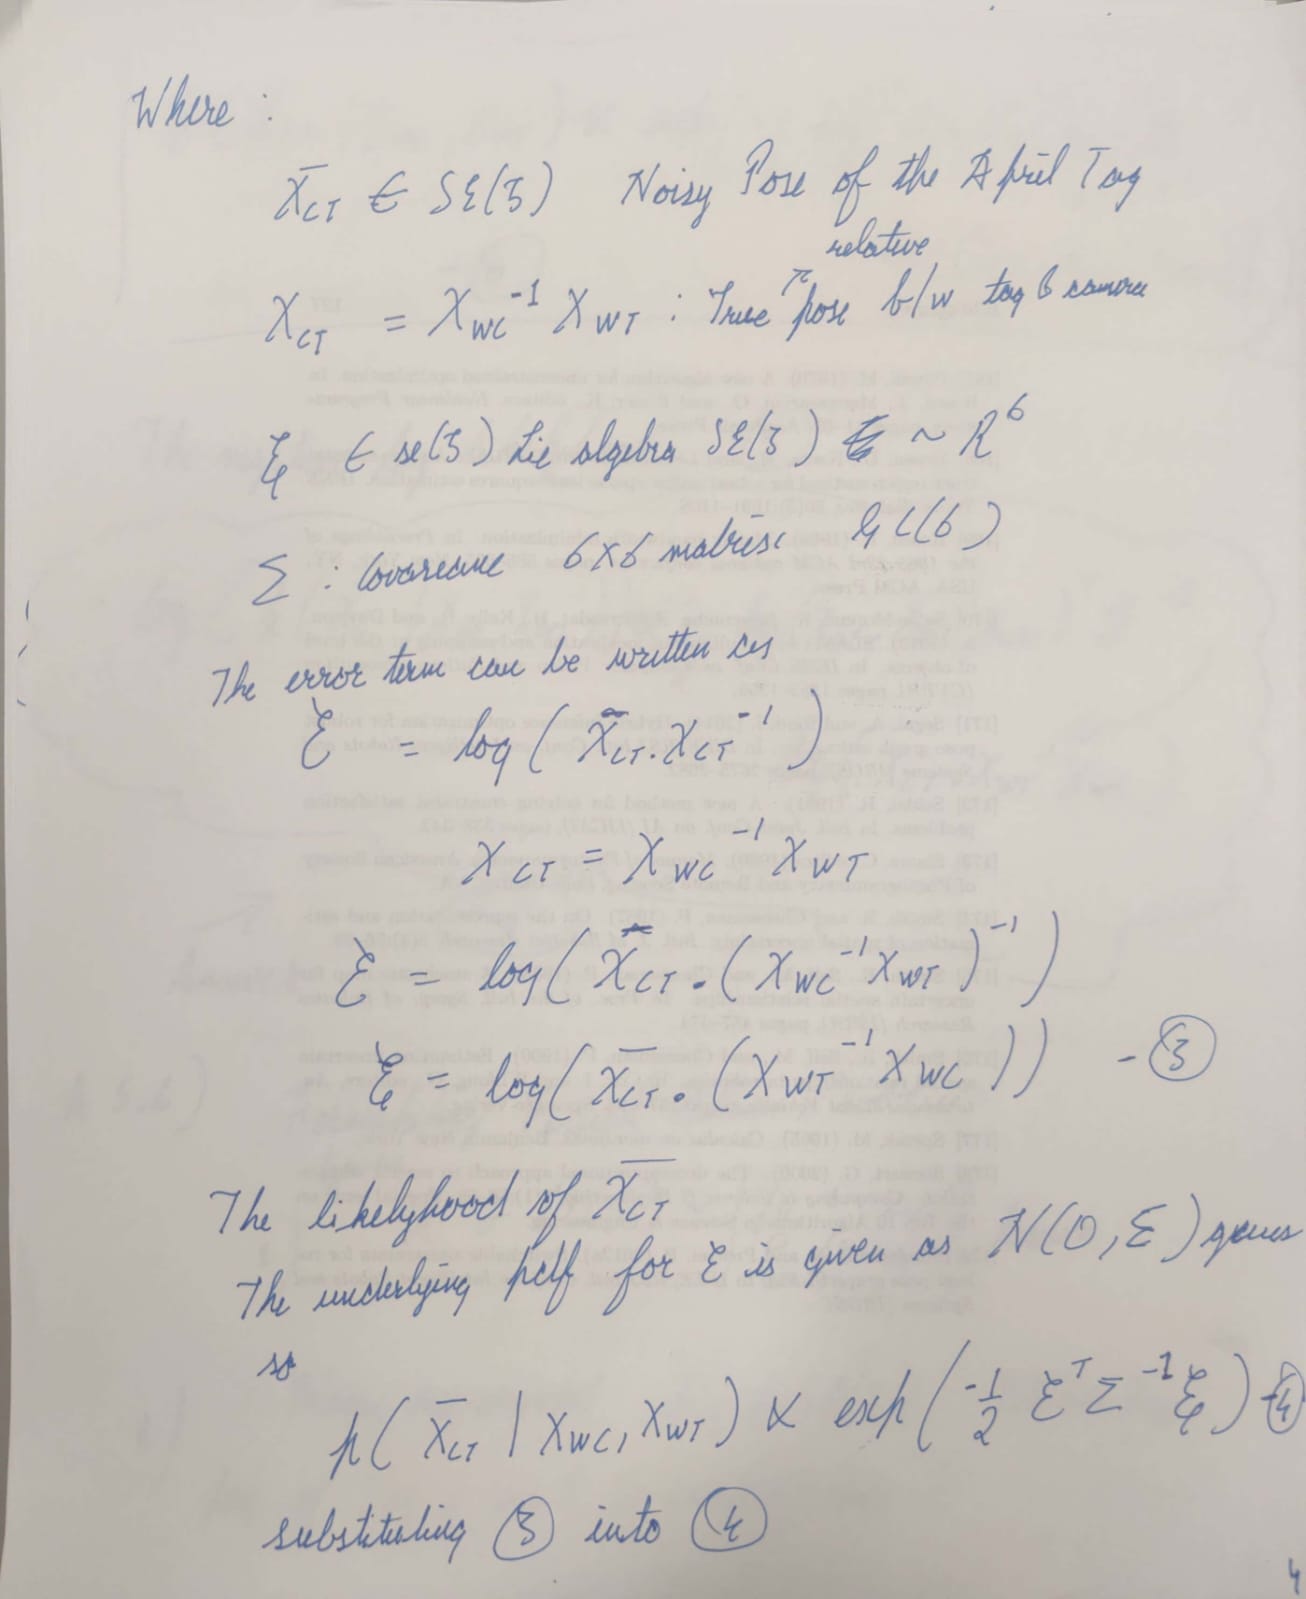 Where :
X̄_CT ∈ SE(3) Noisy Pose of the April Tag
relative
X_CT = X_WC⁻¹ X_WT : True pose b/w tag & camera
ξ ∈ se(3) Lie algebra SE(3) ~ R⁶
Σ : Covariance 6x6 matrix GL(6)
The error term can be written as
ξ = log( X̄_CT . X_CT⁻¹ )
X_CT = X_WC⁻¹ X_WT
ξ = log( X̄_CT . ( X_WC⁻¹ X_WT )⁻¹ )
ξ = log( X̄_CT . ( X_WT⁻¹ X_WC )) - ③
The likelyhood of X̄_CT
The underlying pdf for ξ is given as N(0, Σ)
so
p( X̄_CT | X_WC, X_WT ) ∝ exp( -1/2 ξᵀ Σ⁻¹ ξ ) - ④
substituting ③ into ④
4